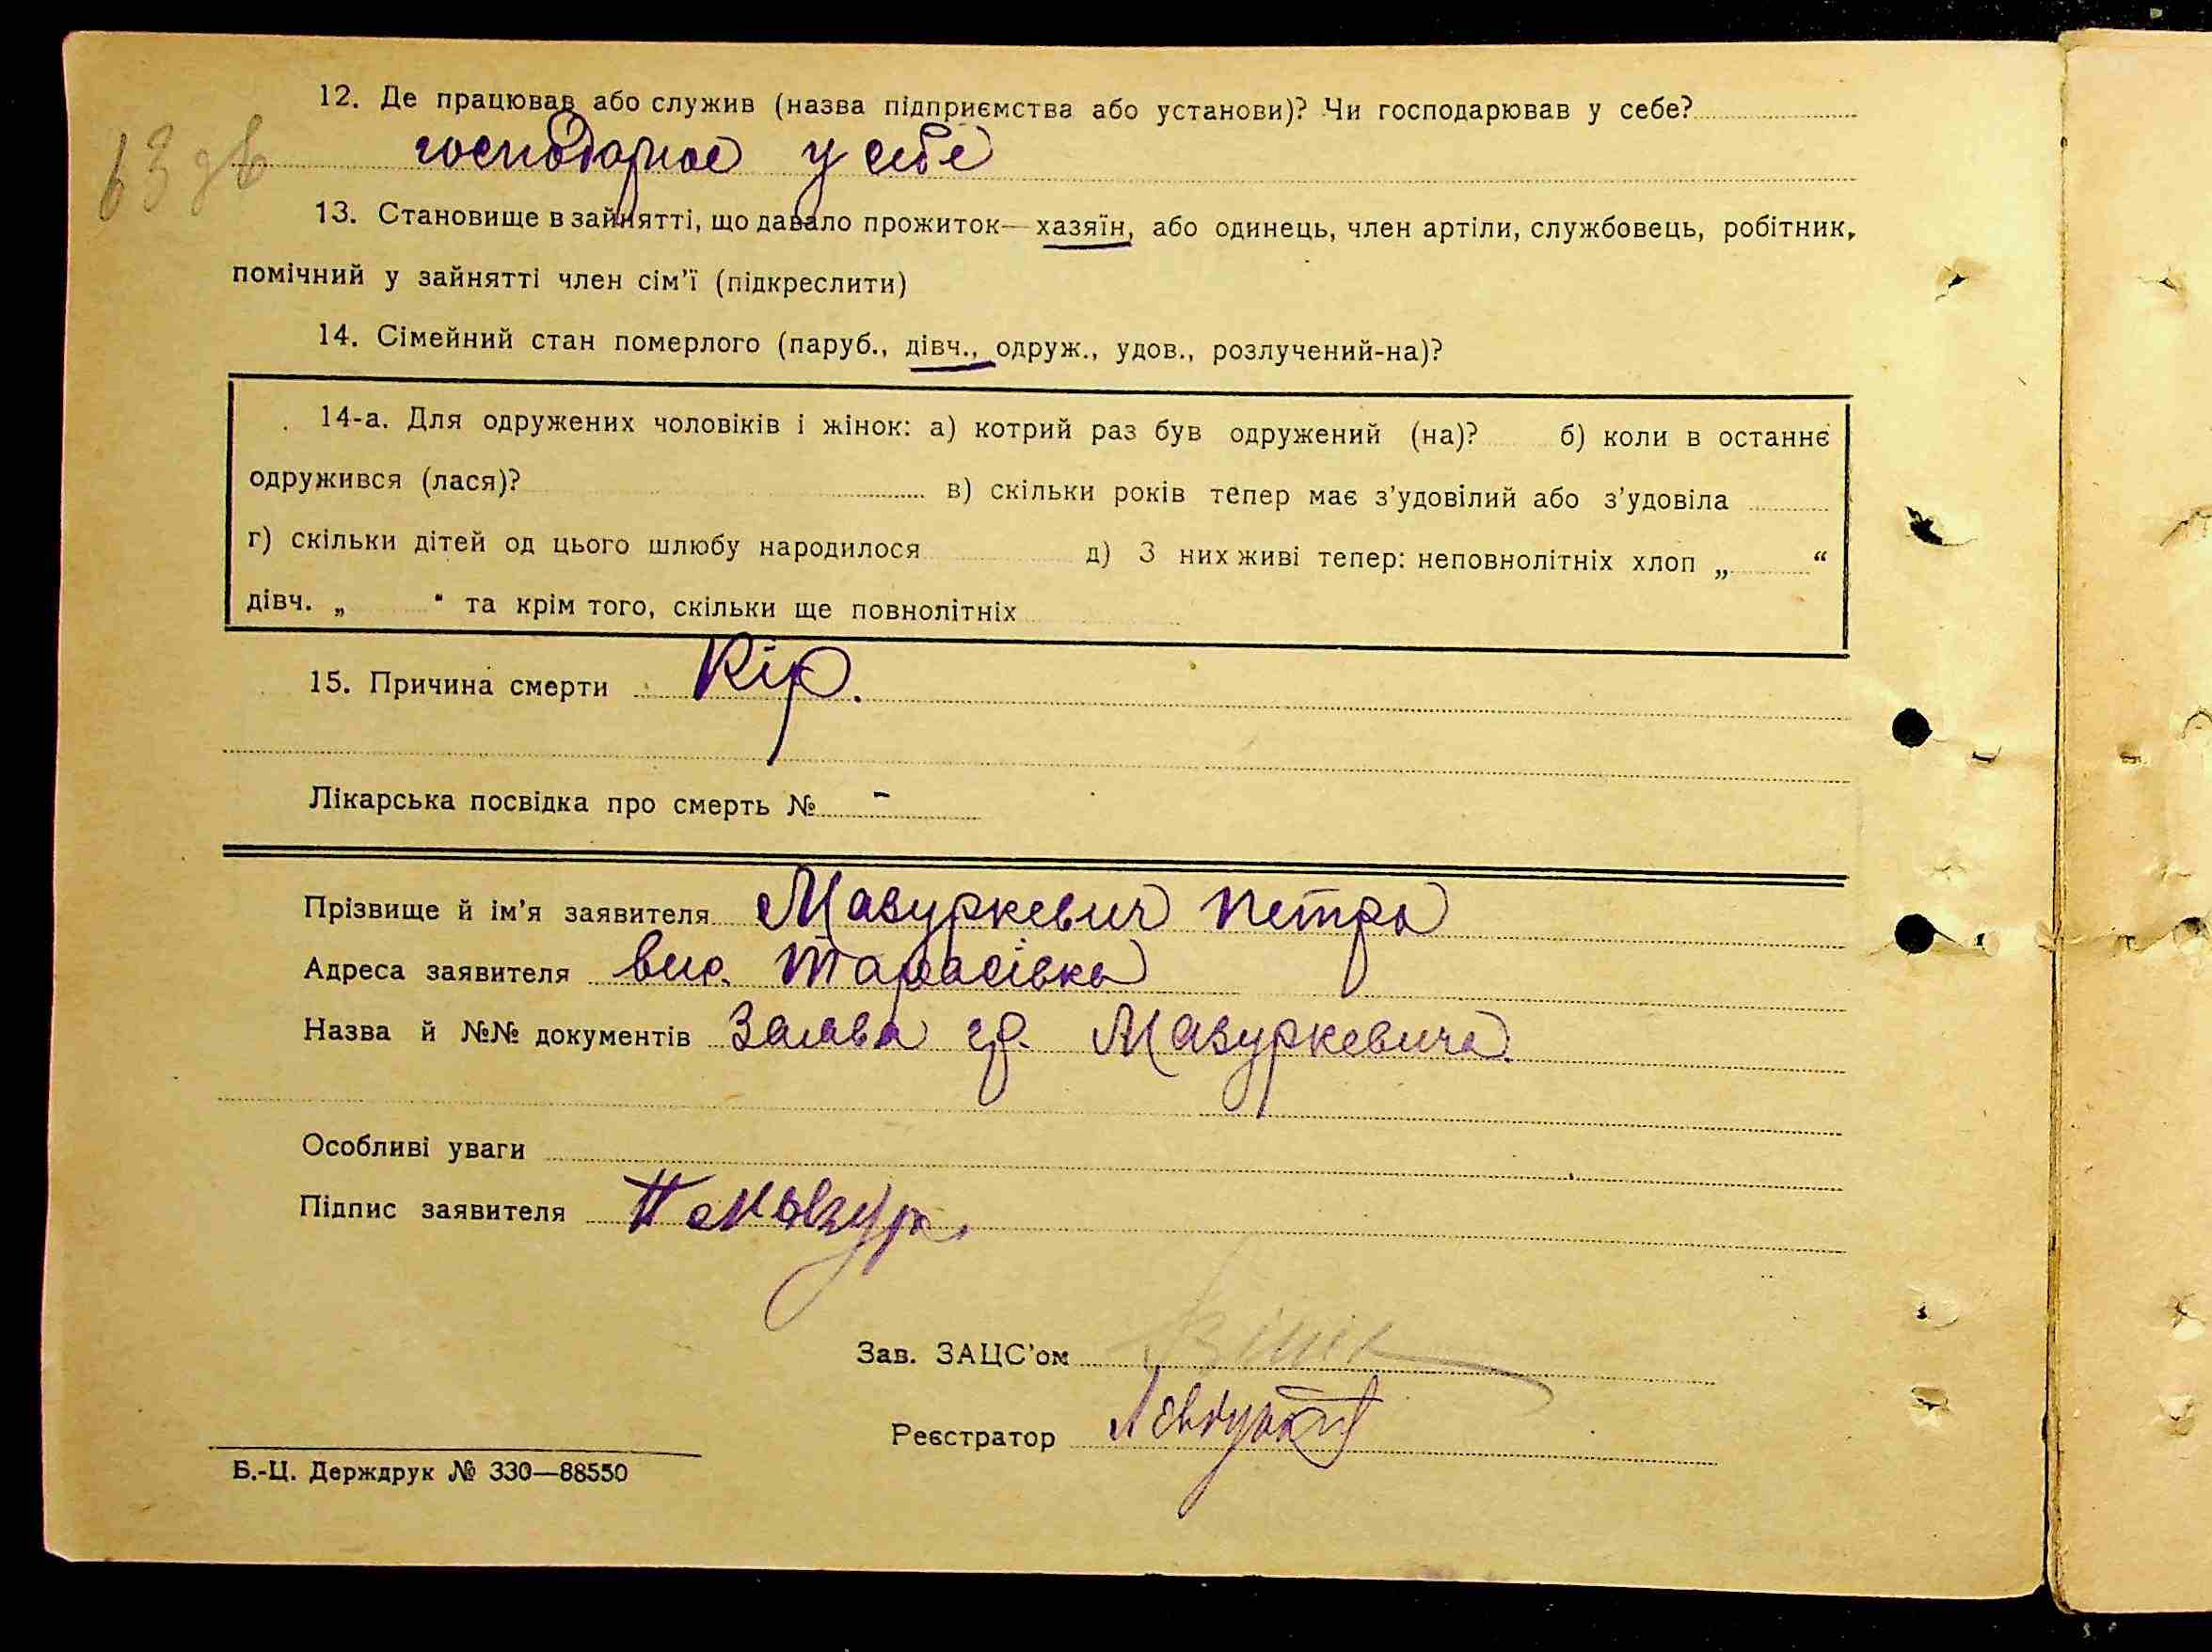 12. Де працював або служив (назва підприємства або установи)? Чи господарював у себе?
63 зв
господарює у себе
13. Становище в зайнятті, що давало прожиток—хазяїн, або одинець, член артіли, службовець, робітник,
помічний у зайнятті член сім'ї (підкреслити)
14. Сімейний стан померлого (паруб., дівч., одруж., удов., розлучений-на)?
14-а. Для одружених чоловіків і жінок: а) котрий раз був одружений (на)? б) коли в останнє
одружився (лася)? в) скільки років тепер має з'удовілий або з'удовіла
г) скільки дітей од цього шлюбу народилося д) З них живі тепер: неповнолітніх хлоп „ “
дівч. „ “ та крім того, скільки ще повнолітніх
15. Причина смерти Кір.
Лікарська посвідка про смерть № -
Прізвище й ім'я заявителя Мазуркевич Петро
Адреса заявителя вис. Тарасівка
Назва й №№ документів Заява гр. Мазуркевича
Особливі уваги
Підпис заявителя
Зав. ЗАЦС'ом
Реєстратор
Б.-Ц. Держдрук № 330—88550